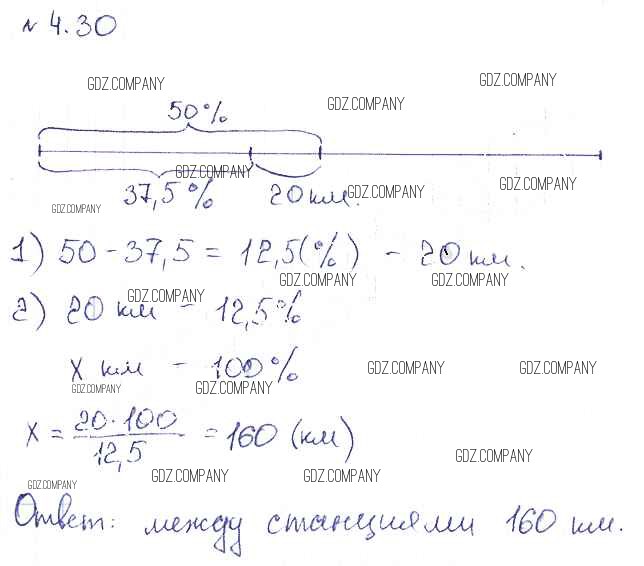 № 4.30
GDZ.COMPANY
GDZ.COMPANY
50%
GDZ.COMPANY
GDZ.COMPANY
37,5%
20 км.
GDZ.COMPANY
GDZ.COMPANY
GDZ.COMPANY
1) 50 - 37,5 = 12,5(%) - 20 км.
GDZ.COMPANY
GDZ.COMPANY
GDZ.COMPANY
2) 20 км - 12,5%
x км - 100%
GDZ.COMPANY
GDZ.COMPANY
GDZ.COMPANY
GDZ.COMPANY
x = 20·100 / 12,5 = 160 (км)
GDZ.COMPANY
GDZ.COMPANY
GDZ.COMPANY
GDZ.COMPANY
Ответ: между станциями 160 км.